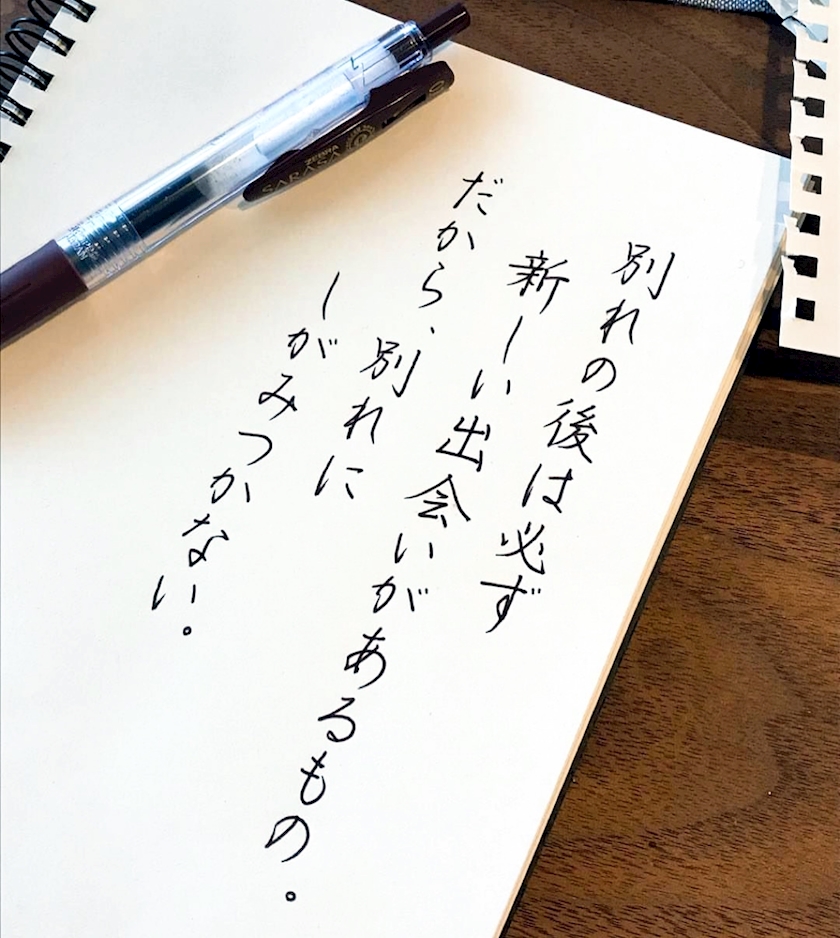 別れの後は必ず
新しい出会いがあるもの。
だから、別れに
しがみつかない。
ZEBRA
SARASA